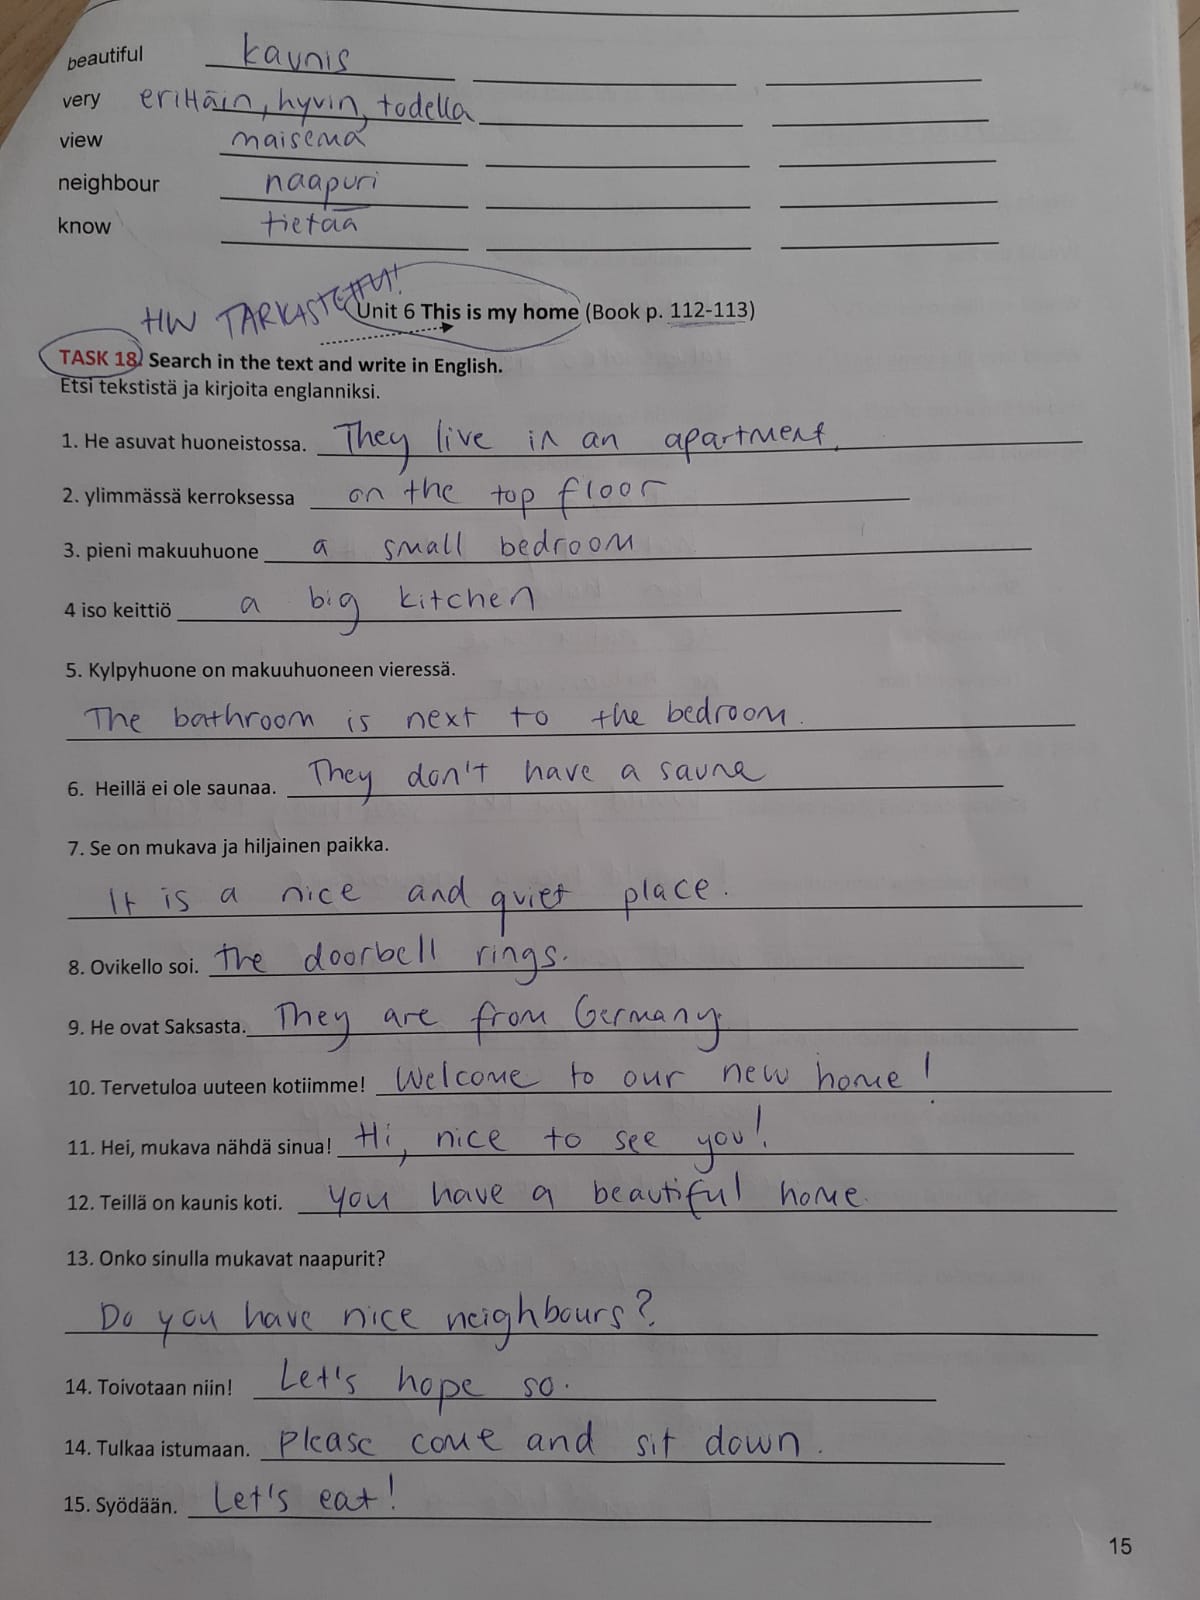 beautiful kaunis
very erittäin, hyvin, todella
view maisema
neighbour naapuri
know tietää
HW TARKASTETTU!
Unit 6 This is my home (Book p. 112-113)
TASK 18. Search in the text and write in English.
Etsi tekstistä ja kirjoita englanniksi.
1. He asuvat huoneistossa. They live in an apartment.
2. ylimmässä kerroksessa on the top floor
3. pieni makuuhuone a small bedroom
4 iso keittiö a big kitchen
5. Kylpyhuone on makuuhuoneen vieressä.
The bathroom is next to the bedroom.
6. Heillä ei ole saunaa. They don't have a sauna
7. Se on mukava ja hiljainen paikka.
It is a nice and quiet place.
8. Ovikello soi. the doorbell rings.
9. He ovat Saksasta. They are from Germany.
10. Tervetuloa uuteen kotiimme! Welcome to our new home!
11. Hei, mukava nähdä sinua! Hi, nice to see you!
12. Teillä on kaunis koti. you have a beautiful home.
13. Onko sinulla mukavat naapurit?
Do you have nice neighbours?
14. Toivotaan niin! Let's hope so.
14. Tulkaa istumaan. Please come and sit down.
15. Syödään. Let's eat!
15